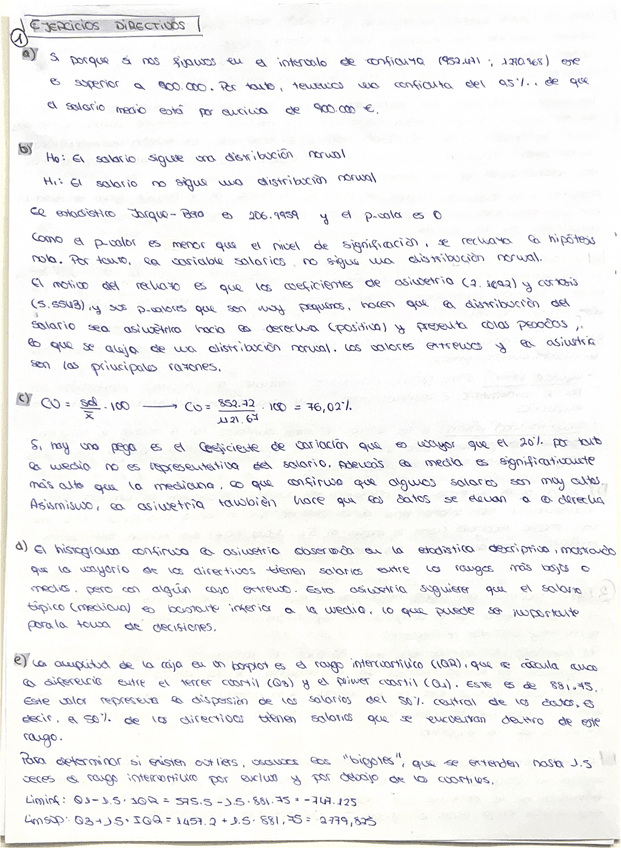 EJERCICIOS DIRECTIVOS
1
a) Si porque si nos fijamos en el intervalo de confianza (952.471 ; 1290.868) ese
es superior a 900.000. Por tanto, tenemos una confianza del 95%. de que
el salario medio está por encima de 900.000 €.
b) H0: El salario sigue una distribución normal
H1: El salario no sigue una distribución normal
El estadístico Jarque-Bera es 206.9959 y el p-valor es 0
Como el p-valor es menor que el nivel de significación, se rechaza la hipótesis
nula. Por tanto, la variable salarios, no sigue una distribución normal.
El motivo del rechazo es que los coeficientes de asimetría (2.1692) y curtosis
(5.5543), y sus p-valores que son muy pequeños, hacen que la distribución del
salario sea asimétrica hacia la derecha (positiva) y presenta colas pesadas,
lo que se aleja de una distribución normal. Los valores extremos y la asimetría
son las principales razones.
c) CV = sd/x̄ · 100 → CV = 852.72/1121.67 · 100 = 76,02%
Si, hay una pega es el Coeficiente de variación que es mayor que el 20% por tanto
la media no es representativa del salario. Además la media es significativamente
más alta que la mediana, lo que confirma que algunos salarios son muy altos.
Asimismo, la asimetría también hace que los datos se elevan a la derecha
d) El histograma confirma la asimetría observada en la estadística descriptiva, mostrando
que la mayoría de los directivos tienen salarios entre los rangos más bajos o
medios, pero con algún caso extremo. Esta asimetría sugiere que el salario
típico (mediana) es bastante inferior a la media, lo que puede ser importante
para la toma de decisiones.
e) La amplitud de la caja en un boxplot es el rango intercuartílico (IQR), que se calcula como
la diferencia entre el tercer cuartil (Q3) y el primer cuartil (Q1). Este es de 881.75.
Este valor representa la dispersión de los salarios del 50% central de los datos, es
decir, el 50% de los directivos tienen salarios que se encuentran dentro de este
rango.
Para determinar si existen outliers, usamos los "bigotes", que se extienden hasta 1.5
veces el rango intercuartílico por encima y por debajo de los cuartiles.
Liminf: Q1 - 1.5 · IQR = 575.5 - 1.5 · 881.75 = -747.125
Limsup: Q3 + 1.5 · IQR = 1457.2 + 1.5 · 881,75 = 2779,825